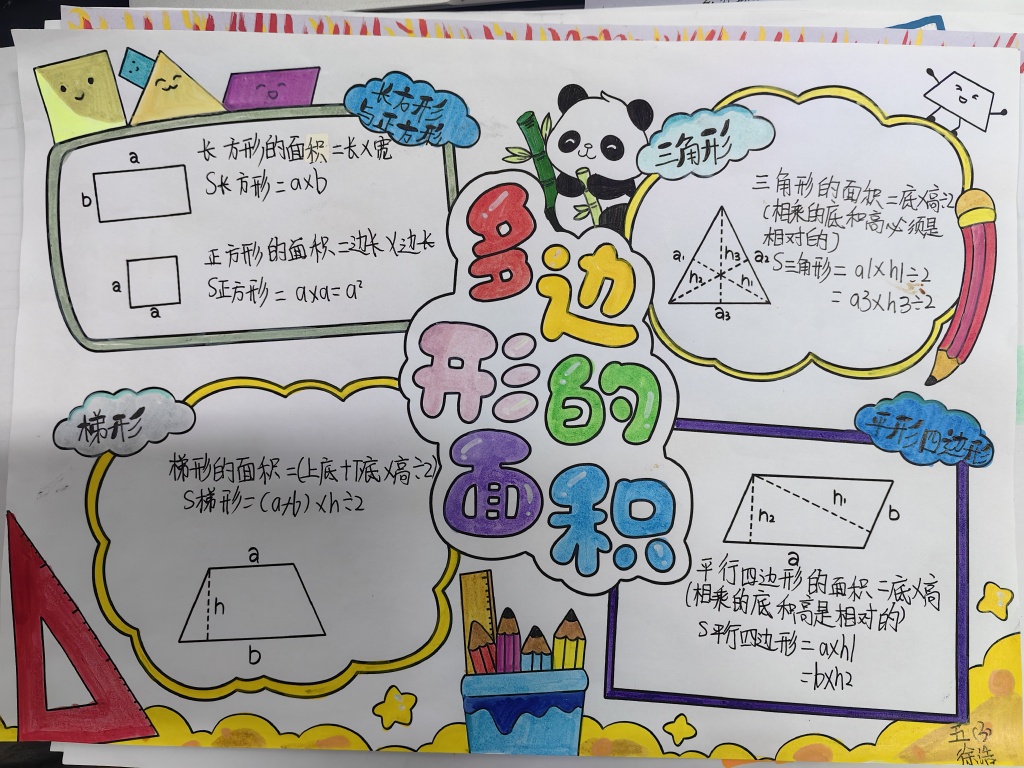 长方形
与正方形
长方形的面积=长×宽
S长方形=a×b
a
b
正方形的面积=边长×边长
S正方形=a×a=a²
a
a
多边
形的
面积
三角形
三角形的面积=底×高÷2
(相乘的底和高必须是
相对的)
S三角形=a1×h1÷2
=a3×h3÷2
a₁
a₂
h₃
h₂
h₁
a₃
梯形
梯形的面积=(上底+下底)×高÷2
S梯形=(a+b)×h÷2
a
h
b
平行四边形
h₁
h₂
b
a
平行四边形的面积=底×高
(相乘的底和高是相对的)
S平行四边形=a×h1
=b×h2
五(3)
徐浩